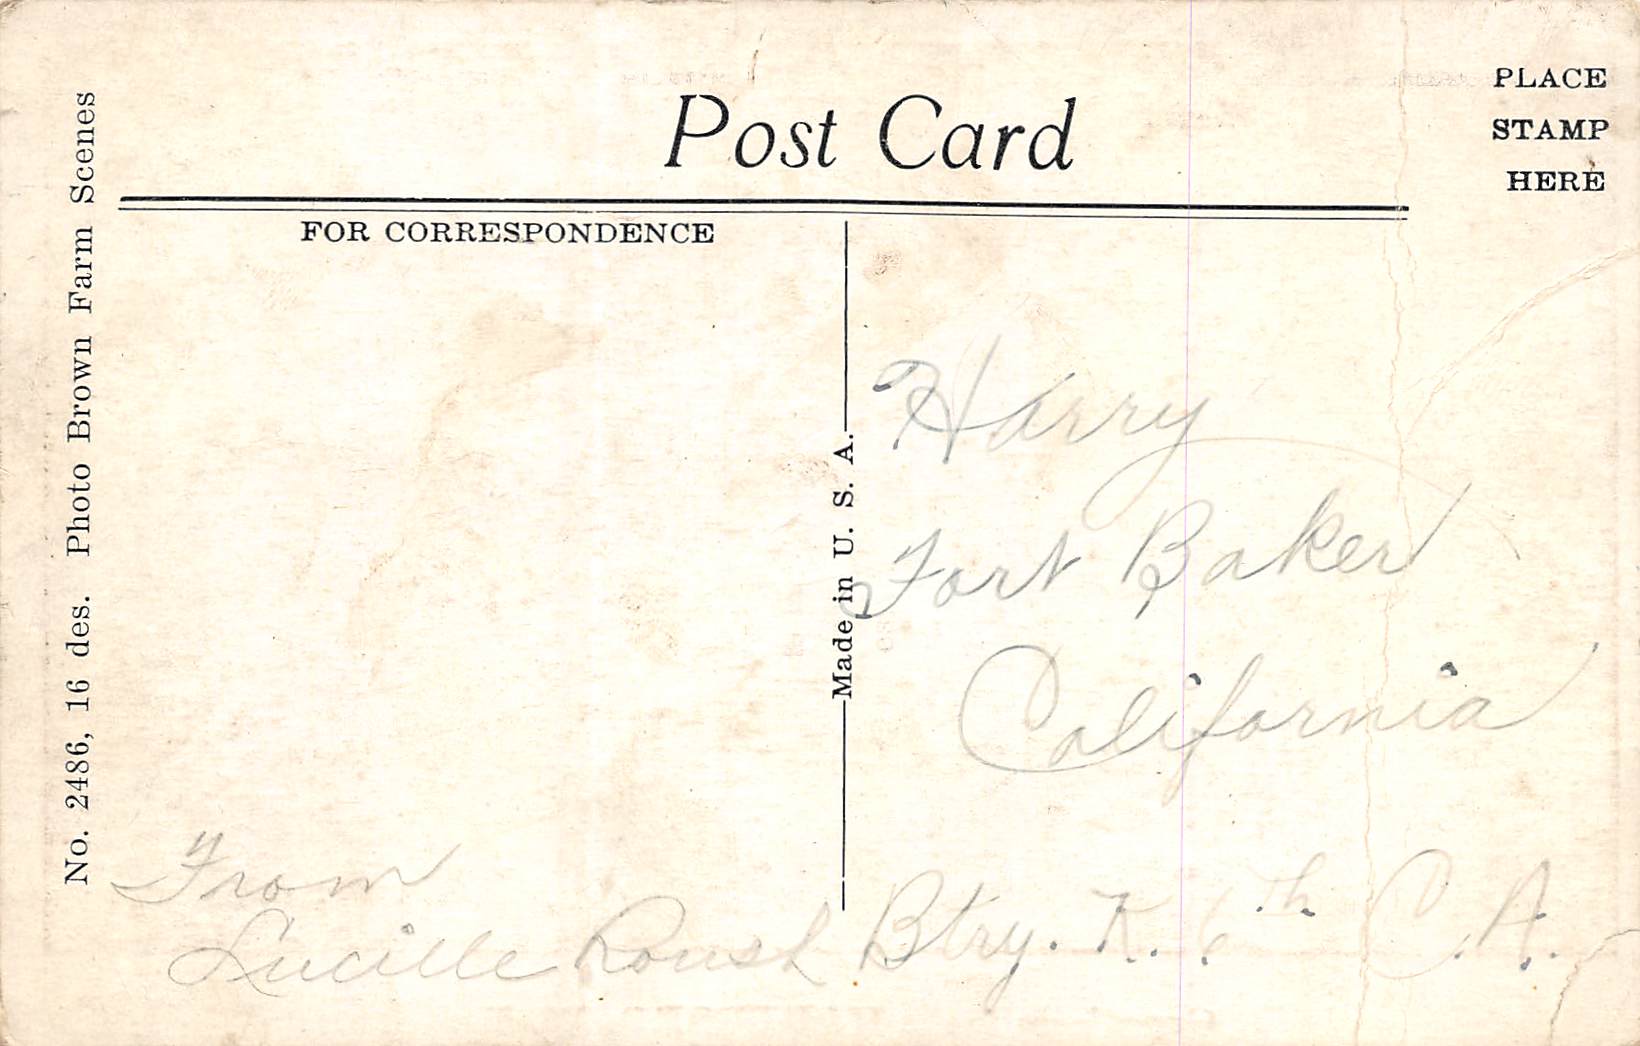 Post Card
PLACE
STAMP
HERE
FOR CORRESPONDENCE
No. 2486, 16 des. Photo Brown Farm Scenes
Made in U. S. A.
Harry
Fort Baker
California
From
Lucille Roush
Btry. K. 6th C. A.